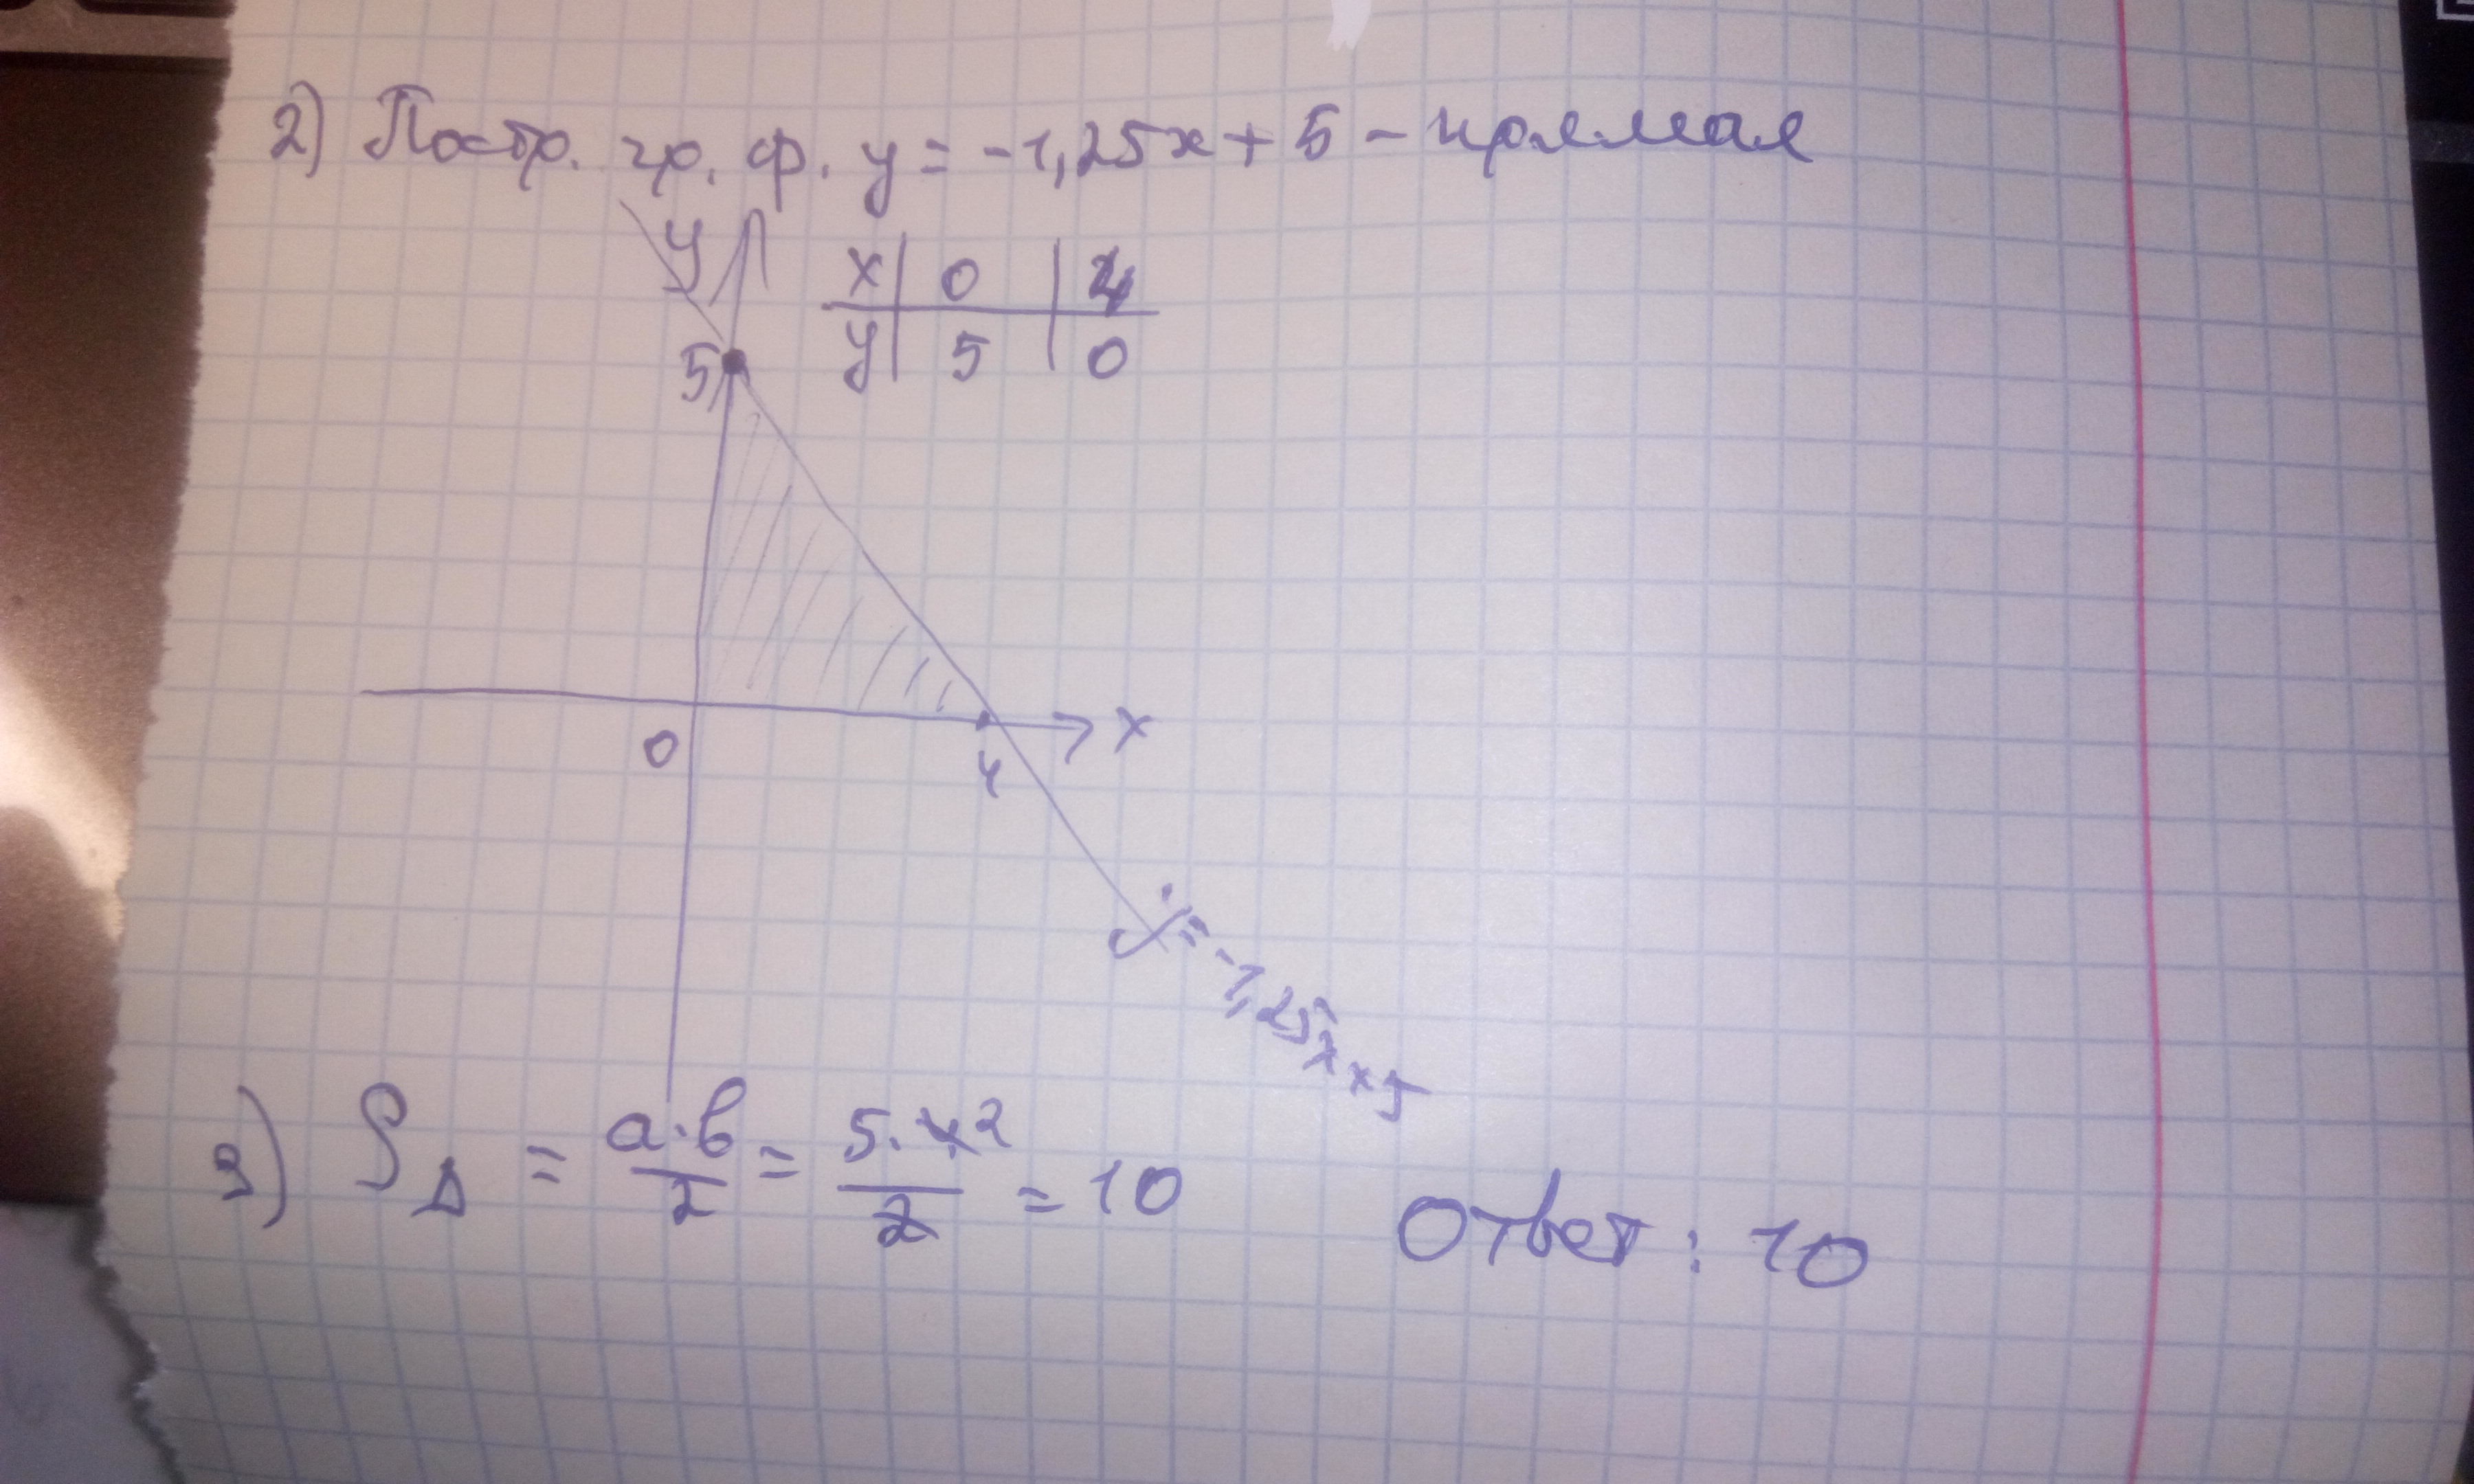 2) Постр. гр. ф. y = -1,25x + 5 - прямая
y
x | 0 | 4
y | 5 | 0
5
0
4
x
y = -1,25x + 5
3) S△ = a·b/2 = 5·4²/2 = 10
Ответ: 10